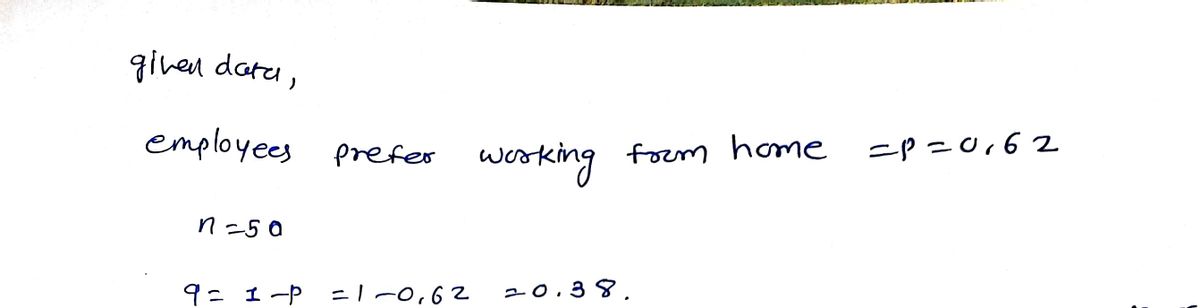 given data,
employees prefer working form home = p = 0.62
n = 50
q = 1 - p = 1 - 0.62 = 0.38.